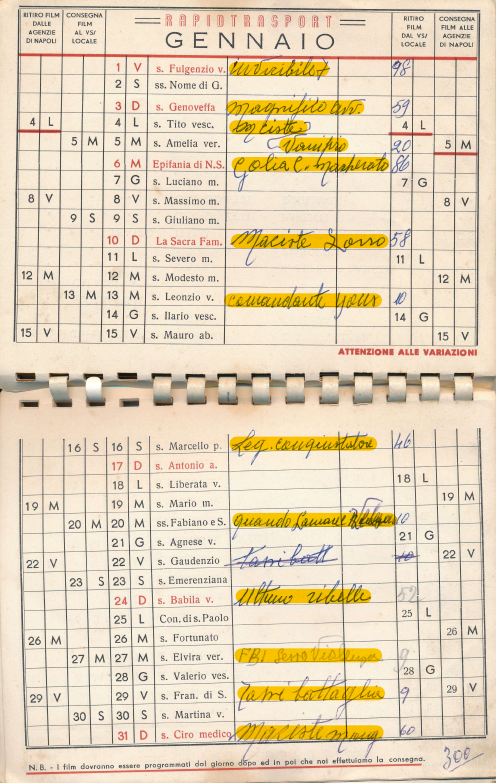 RITIRO FILM DALLE AGENZIE DI NAPOLI
CONSEGNA FILM AL VS/ LOCALE
RAPIDTRASPORT
GENNAIO
RITIRO FILM DAL VS/ LOCALE
CONSEGNA FILM ALLE AGENZIE DI NAPOLI
1 V s. Fulgenzio v. Invincibile 7 98
2 S ss. Nome di G.
3 D s. Genoveffa Magnifico avv. 59
4 L 4 L s. Tito vesc. Maciste 4 L
5 M 5 M s. Amelia ver. Vampiro 20 5 M
6 M Epifania di N.S. Golia C. Mascherato 86
7 G s. Luciano m. 7 G
8 V 8 V s. Massimo m. 8 V
9 S 9 S s. Giuliano m.
10 D La Sacra Fam. Maciste Zorro 58
11 L s. Severo m. 11 L
12 M 12 M s. Modesto m. 12 M
13 M 13 M s. Leonzio v. comandante 10
14 G s. Ilario vesc. 14 G
15 V 15 V s. Mauro ab. 15 V
ATTENZIONE ALLE VARIAZIONI
16 S 16 S s. Marcello p. Leg. conquistatore 46
17 D s. Antonio a.
18 L s. Liberata v. 18 L
19 M 19 M s. Mario m. 19 M
20 M 20 M ss. Fabiano e S. quando l'amore 10
21 G s. Agnese v. 21 G
22 V 22 V s. Gaudenzio 10 22 V
23 S 23 S s. Emerenziana
24 D s. Babila v. Ultimo ribelle 52
25 L Con. di s. Paolo 25 L
26 M 26 M s. Fortunato 26 M
27 M 27 M s. Elvira ver. FBI
28 G s. Valerio ves. 28 G
29 V 29 V s. Fran. di S. battaglia 9 29 V
30 S 30 S s. Martina v.
31 D s. Ciro medico Maciste 60
300
N.B. - I film dovranno essere programmati dal giorno dopo ed in poi che noi effettuiamo la consegna.